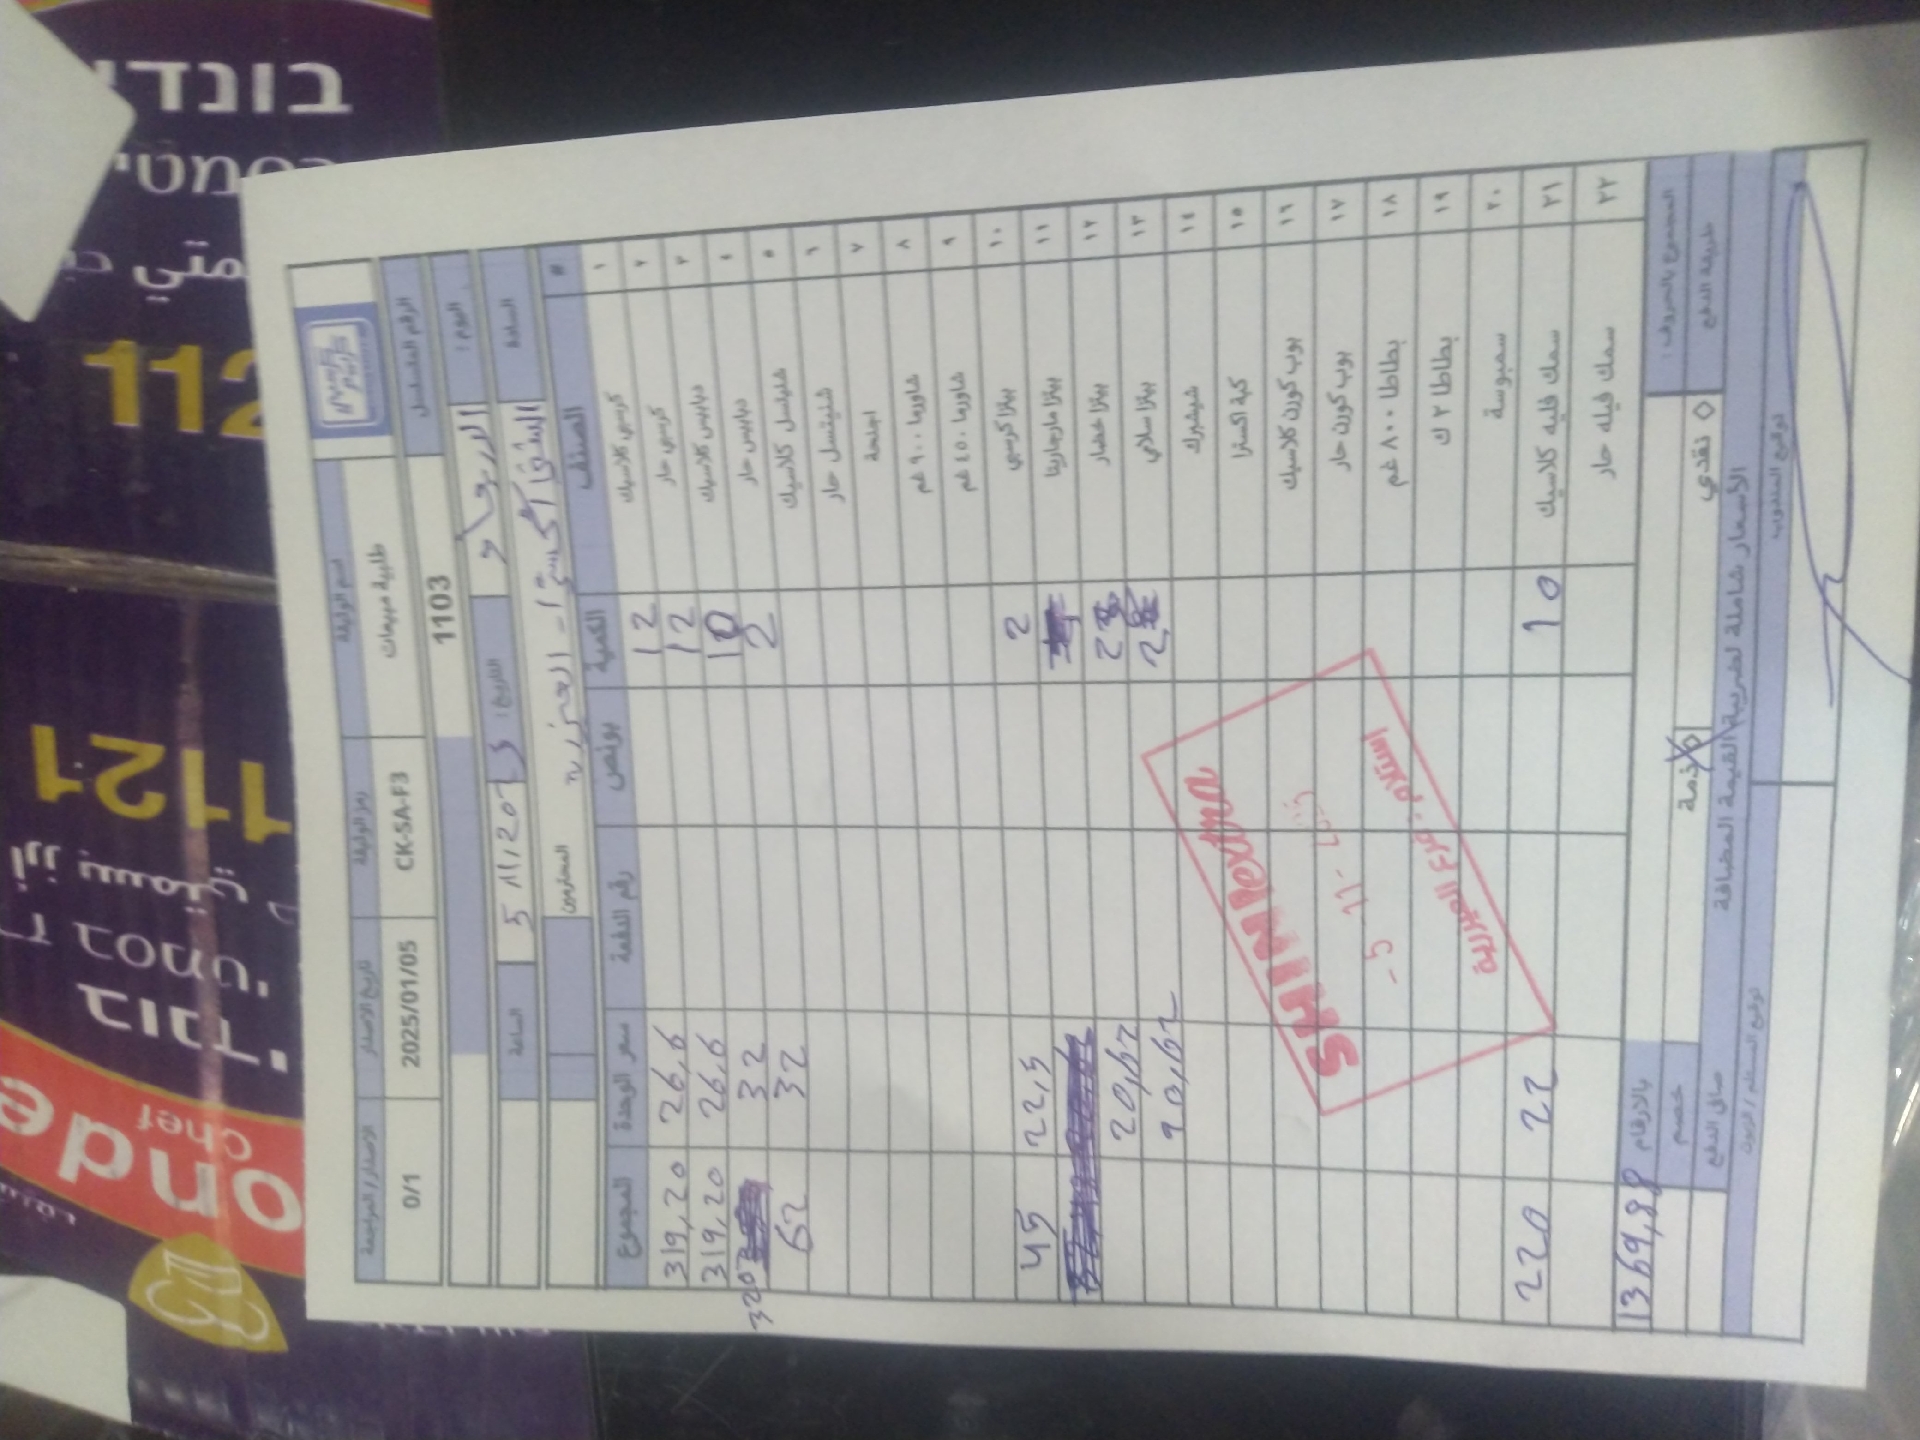 اسم الوثيقة رمز الوثيقة تاريخ الاصدار الاصدار/المراجعة
طلبية مبيعات CK-SA-F3 2025/01/05 0/1
الرقم المتسلسل 1103
اليوم: الاربعاء التاريخ: 5/11/2025 الساعة
السادة الشني اكسترا - العيزرية المحترمين
# الصنف الكمية بونص رقم الدفعة سعر الوحدة المجموع
١ كرسبي كلاسيك 12 26,6 319,20
٢ كرسبي حار 12 26,6 319,20
٣ دبابيس كلاسيك 10 32 320
٤ دبابيس حار 2 32 62
٥ شنيتسل كلاسيك
٦ شنيتسل حار
٧ اجنحة
٨ شاورما ٩٠٠ غم
٩ شاورما ٤٥٠ غم
١٠ بيتزا كرسبي 2 22,5 45
١١ بيتزا مارجاريتا
١٢ بيتزا خضار 2 20,62
١٣ بيتزا سلامي 2 20,62
١٤ شيشبرك
١٥ كبة اكسترا
١٦ بوب كورن كلاسيك
١٧ بوب كورن حار
١٨ بطاطا ٨٠٠ غم
١٩ بطاطا ٢ ك
٢٠ سمبوسة
٢١ سمك فليه كلاسيك 10 22 220
٢٢ سمك فيله حار
المجموع بالحروف: بالارقام 1369,88
طريقة الدفع نقدي ذمة خصم
صافي الدفع
الأسعار شاملة لضريبة القيمة المضافة
توقيع المندوب توقيع المستلم / الزبون
SHINIextra
5-11-
استلام: فرع العيزرية
בונדי
בסמטי
112
1121
أرز بسمتي
בסמטי
בונדי
Chef